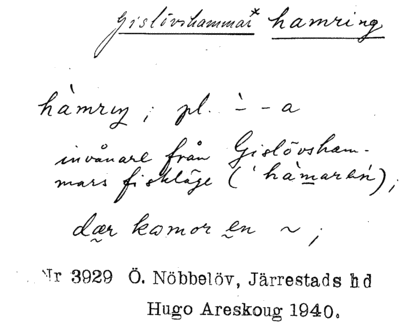 Gislövshammar* hamring
hàmrıŋ ; pl. `– –a
invånare från Gislövsham-
mars fiskläge ('hàmaren');
dær komor en ~ ;
Nr 3929 Ö. Nöbbelöv, Järrestads hd
Hugo Areskoug 1940.